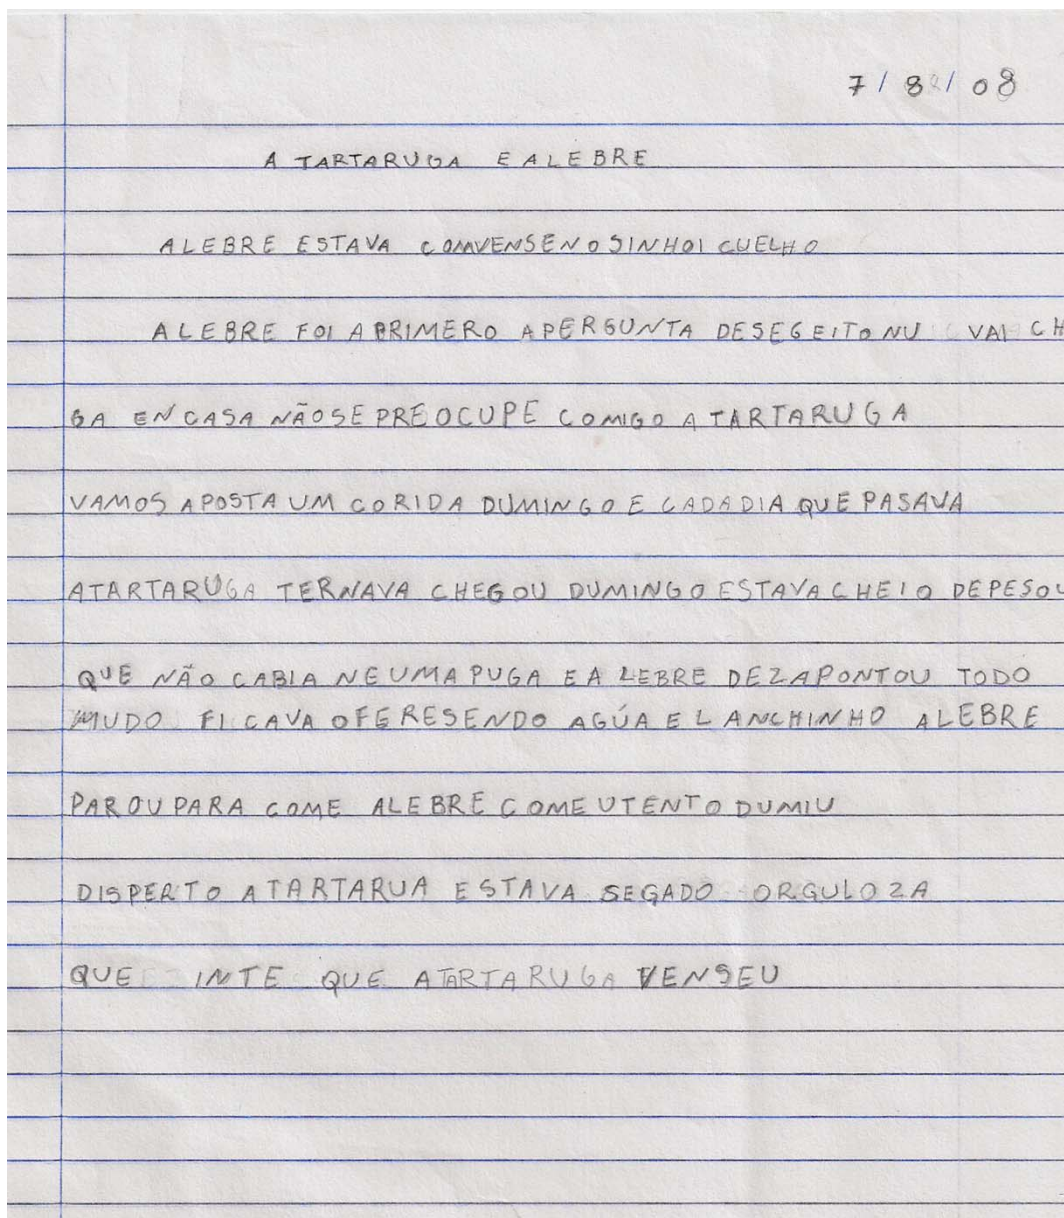 7/8/08
A TARTARUGA E ALEBRE
ALEBRE ESTAVA COMVENSENOSINHOI CUELHO
ALEBRE FOI APRIMERO APERGUNTA DESEGEITO NU VAI CH
GA EN CASA NÃOSE PREOCUPE COMIGO A TARTARUGA
VAMOS APOSTA UM CORIDA DUMINGO E CADADIA QUE PASAVA
ATARTARUGA TERNAVA CHEGOU DUMINGO ESTAVA CHEIO DEPESOU
QUE NÃO CABIA NEUMA PUGA EA LEBRE DEZAPONTOU TODO
MUDO FICAVA OFERESENDO AGÚA E LANCHINHO ALEBRE
PAROU PARA COME ALEBRE COMEUTENTO DUMIU
DISPERTO ATARTARUA ESTAVA SEGADO ORGULOZA
QUE INTE QUE ATARTARUGA VENSEU